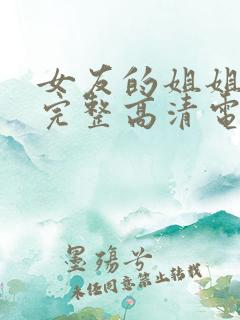 女友的姐姐
完整高清电
墨殇兮
未经同意禁止转载